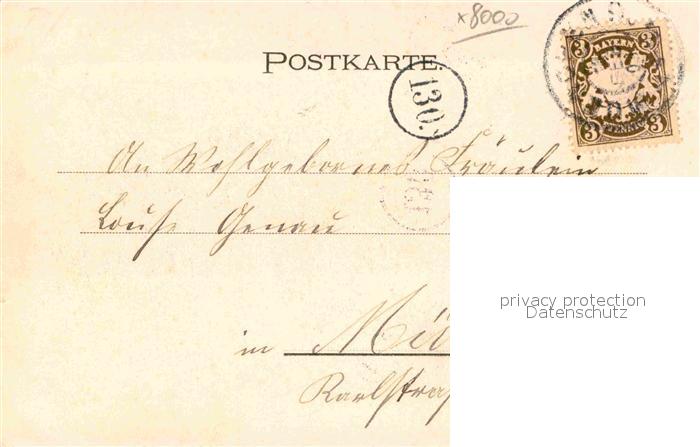 x8000
POSTKARTE.
130.
3 BAYERN 3
3 PFENNIG 3
An Wohlgebornes Fräulein
Louise Genau
in Mü
Karlstras
privacy protection
Datenschutz